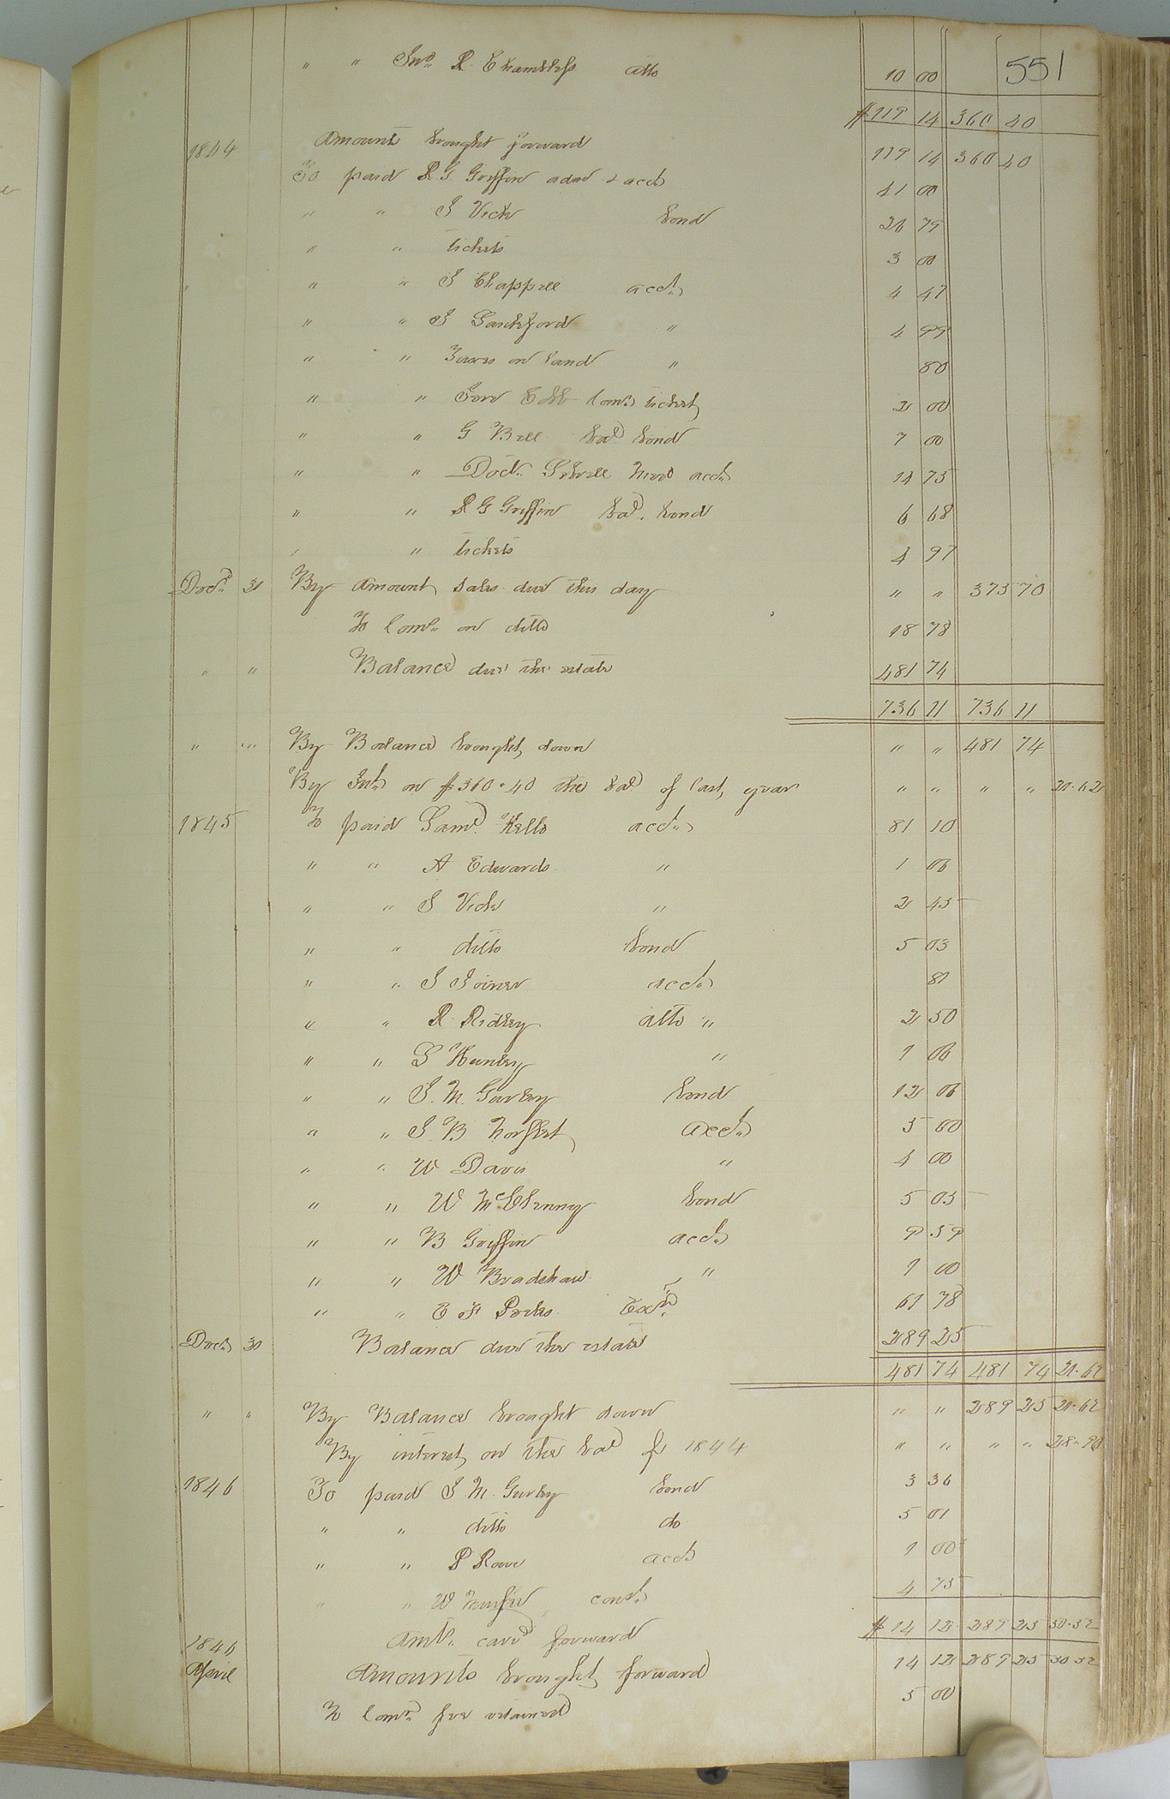 551
" " Jno. R. Chambliss atto 10 00
$119 14 360 40
1844 Amount brought forward 119 14 360 40
To paid R G Griffin adm's acct 41 00
" " J Vick bond 26 79
" " tickets 3 00
" " J Chappell acct. 4 47
" " J Lankford " 4 99
" " Taxes on land " 80
" " tickets 2 00
" " G Bell bal bond 7 00
" " Doct. Med acct. 14 75
" " R G Griffin bal. bond 6 68
" " tickets 4 97
Decr. 31 By amount sales due this day " " 375 70
To Coms. on ditto 18 78
" " Balance due the estate 481 74
736 11 736 11
" " By Balance brought down " " 481 74
By Int. on $360.40 the bal of last year " " " " 21.62
1845 To paid Saml. Kello acct. 81 10
" " A Edwards " 1 06
" " J Vick " 2 45
" " ditto bond 5 03
" " J Joiner acct. 81
" " R Ridley atto " 2 50
" " Hunley " 1 06
" " J. M. Gurley bond 12 06
" " J B Norfleet acct. 5 00
" " W Davis " 4 00
" " W McClenny bond 5 05
" " B Griffin acct. 9 59
" " W Bradshaw " 1 00
" " E F Parks 61 78
Decr. 30 Balance due the estate 289 25
481 74 481 74 21.62
" " By Balance brought down " " 289 25 21.62
By interest on the bal for 1844 " " " " 28.90
1846 To paid J. M. Gurley bond 3 36
" " ditto do 5 01
" " P Rowe acct 1 00
" " W 4 75
Amt. card forward $14 12 289 25 50.52
1846 April Amounts brought forward 14 12 289 25 50 52
To Comr. fee retained 5 00